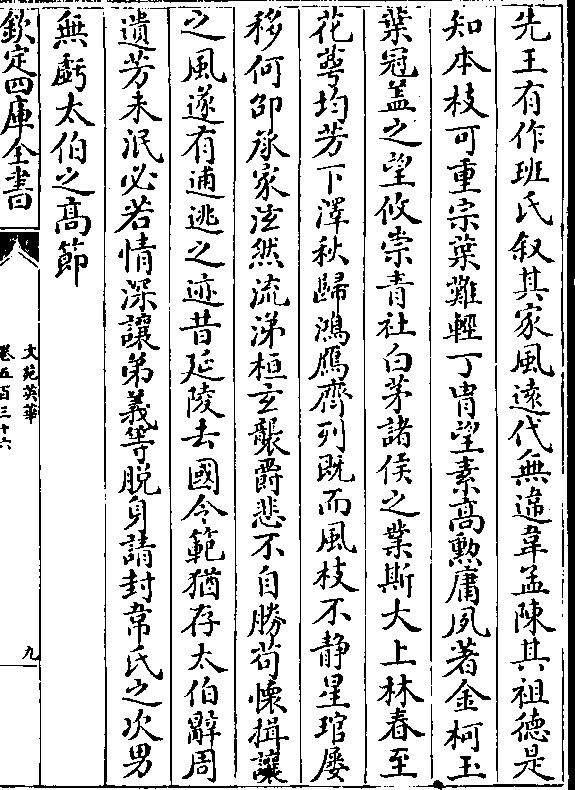 先王有作班氏叙其家風遠代無違韋孟陳其祖德是
知本枝可重宗葉難輕丁冑望素高勲庸夙著金柯玉
葉冠盖之望攸崇青社白茅諸侯之業斯大上林春至
花萼均芳下澤秋歸鴻鴈齊列既而風枝不静星琯屡
移何卲承家泫然流涕桓玄襲爵悲不自勝苟懷揖讓
之風遂有逋逃之迹昔延陵去國令範猶存太伯辭周
遺芳未泯必若情深讓弟義等脱身請封韋氏之次男
無虧太伯之高節
欽定四庫全書
文苑英華
卷五百三十六
九